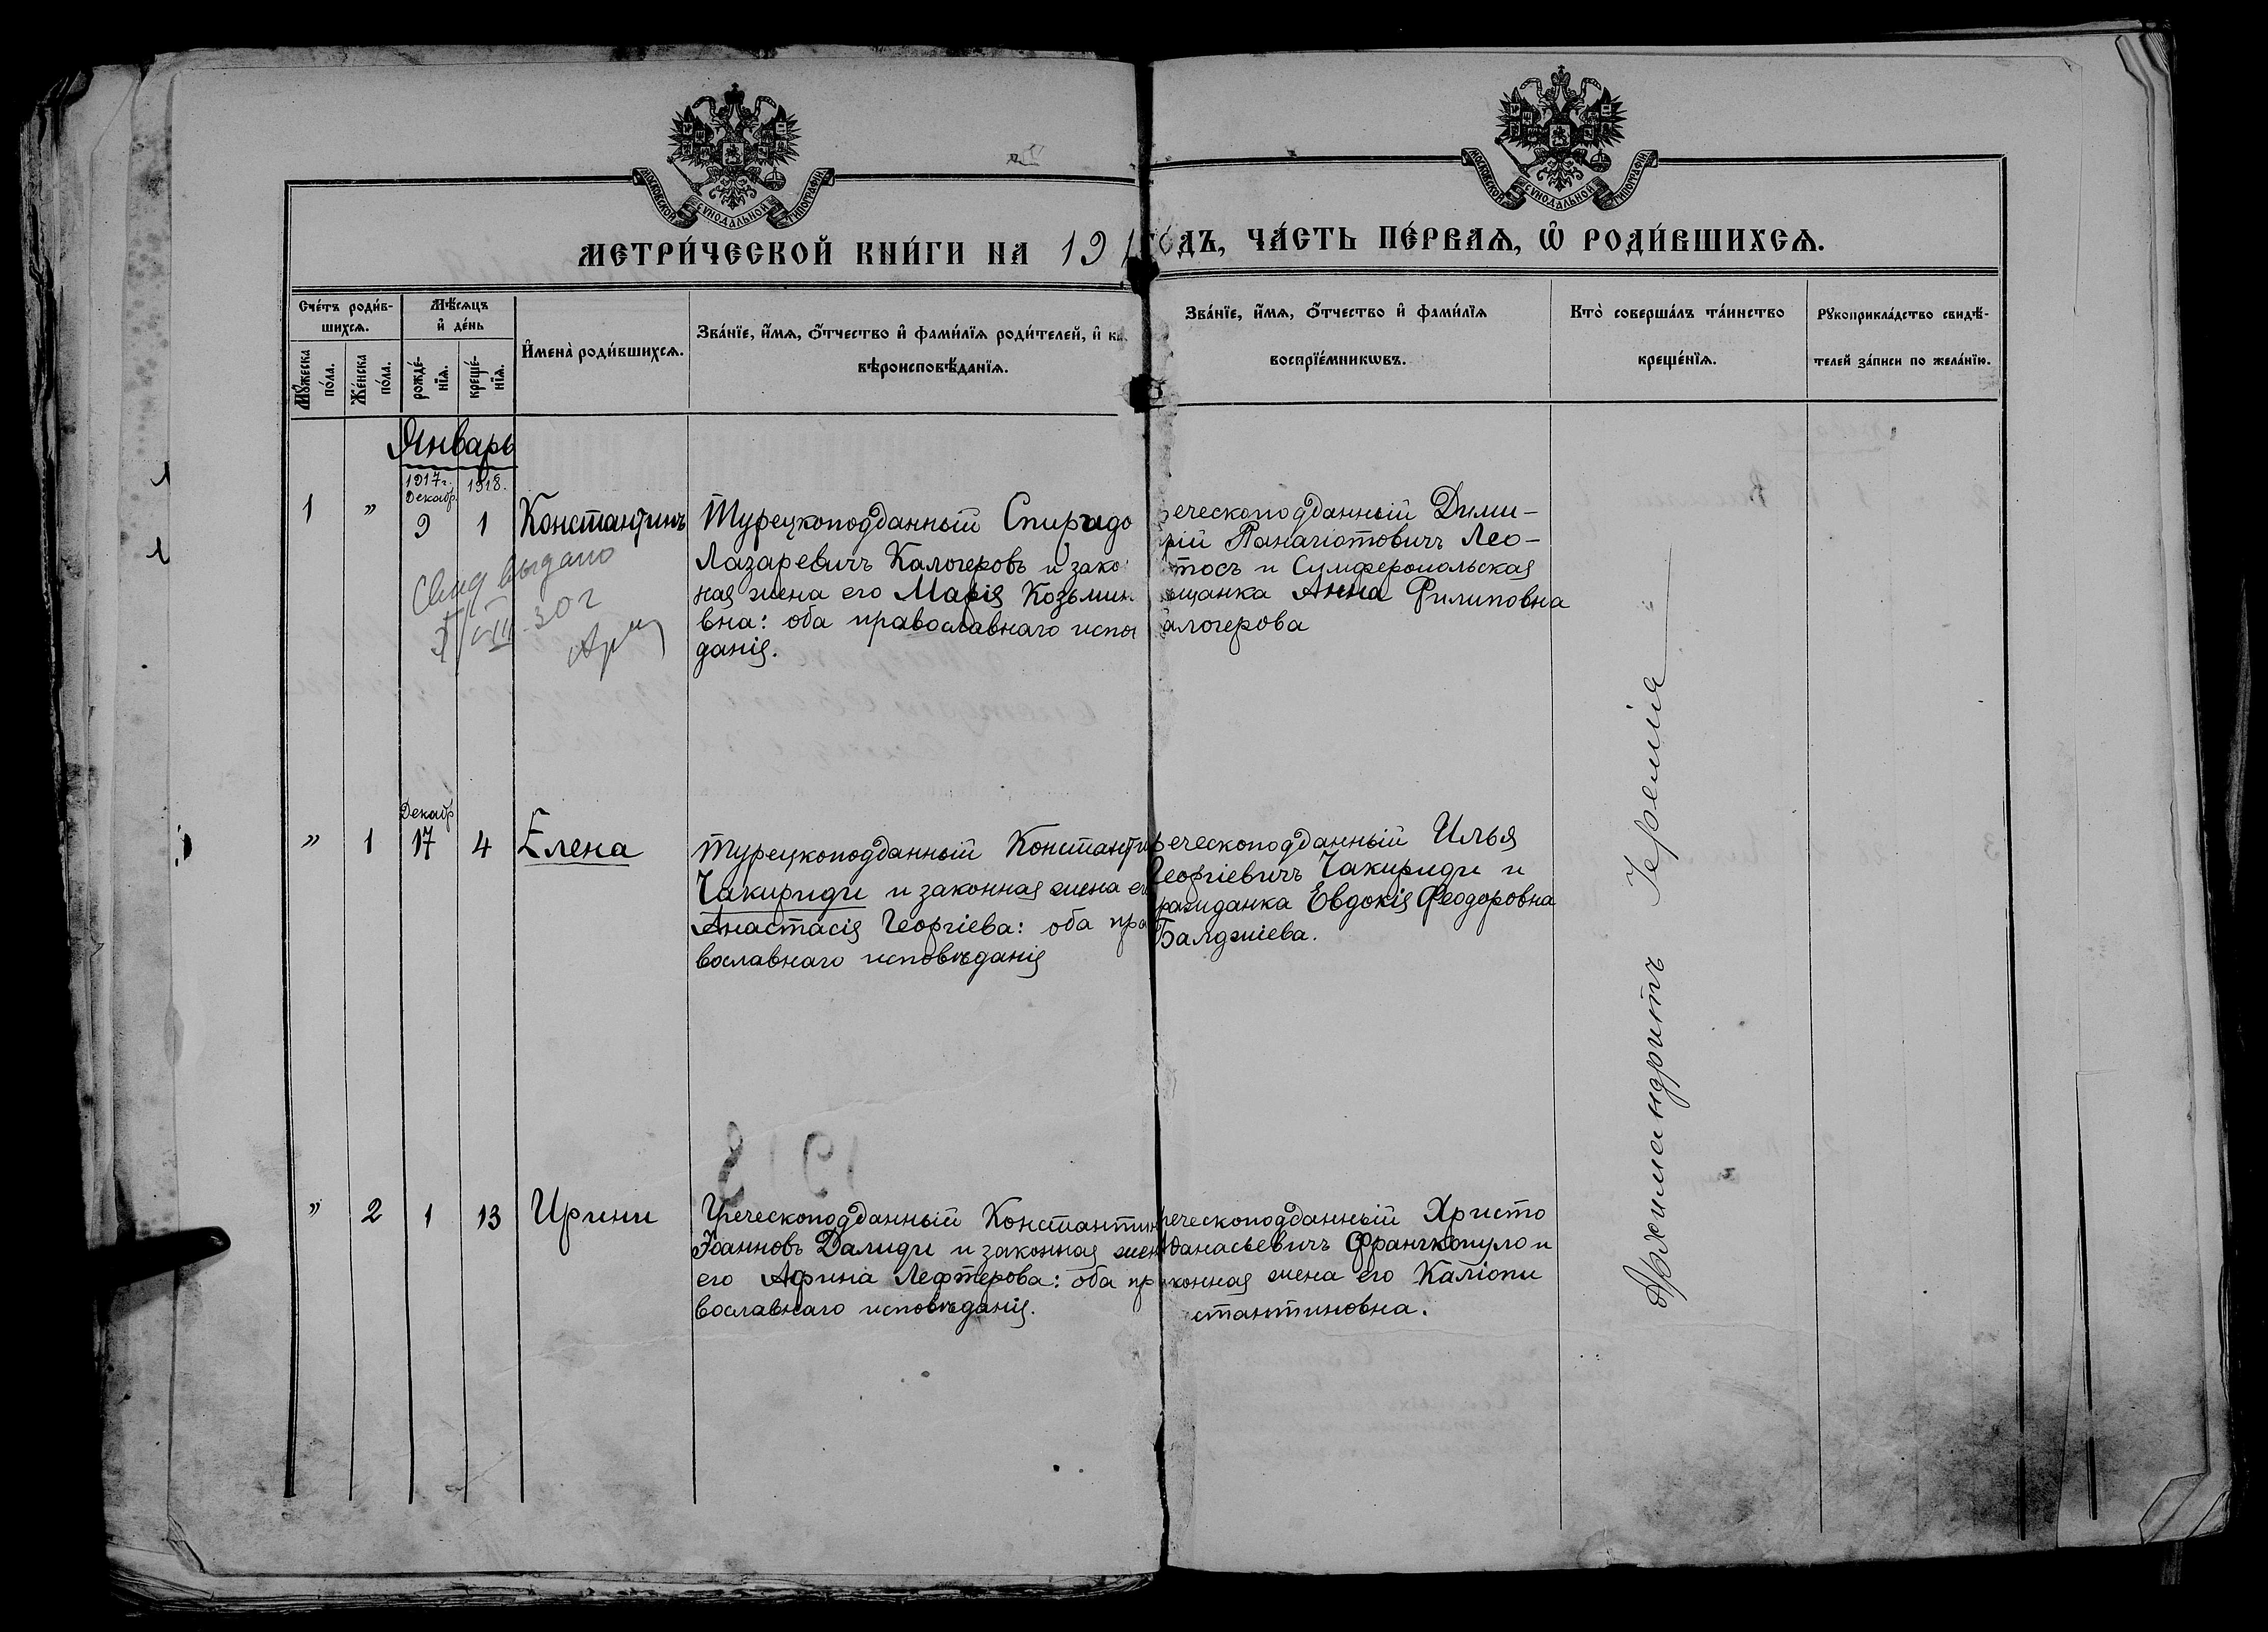 МОСКОВСКОЙ СУНОДАЛЬНОЙ ТИПОГРАФІИ
МОСКОВСКОЙ СУНОДАЛЬНОЙ ТИПОГРАФІИ
МЕТРИ́ЧЕСКОЙ КНИ́ГИ НА 191
ГО́ДЪ, ЧА́СТЬ ПЕ́РВАѦ, Ѡ҆ РОДИ́ВШИХСѦ.
Сче́тъ роди́в-
шихсѧ.
Мꙋ́жеска
по́ла.
Же́нска
по́ла.
Мѣ́сѧцъ
и҆ де́нь
рожде́-
нїѧ.
креще́-
нїѧ.
И҆мена̀ роди́вшихсѧ.
Зва́нїе, и҆́мѧ, ѻ҆́тчество и҆ фами́лїѧ роди́телей, и҆ ка
вѣроисповѣ́данїѧ.
Зва́нїе, и҆́мѧ, ѻ҆́тчество и҆ фами́лїѧ
воспрїе́мникѡвъ.
Кто̀ соверша́лъ та́инство
креще́нїѧ.
Рꙋкоприкла́дство свидѣ́-
телей за́писи по жела́нїю.
Январь
1917 г. Декабр.
1918.
1 " 9 1 Константинъ
Турецкоподданный Спиридо
Лазаревичъ Калогеровъ и зако
ная жена его Марія Козьмин
вна: оба православнаго испо
данія.
реческоподданный Дими-
рій Панагіотовичъ Лео-
тосъ и Симферопольская
ѣщанка Анна Филиповна
алогерова
Свид выдано
30 г
Декабр
" 1 17 4 Елена
Турецкоподданный Константи
Чакириди и законная жена его
Анастасія Георгіева: оба пра
вославнаго исповѣданія
реческоподданный Илья
Георгіевичъ Чакириди и
ражданка Евдокія Феодоровна
Балджіева.
" 2 1 13 Ирини
Греческоподданный Константин
Іоанновъ Далиди и законная жен
его Афина Лефтерова: оба пр
вославнаго исповѣданія.
реческоподданный Христо
данасьевичъ Франгкопуло и
конная жена его Каліопи
стантиновна.
Архимандритъ Іеремія
1918